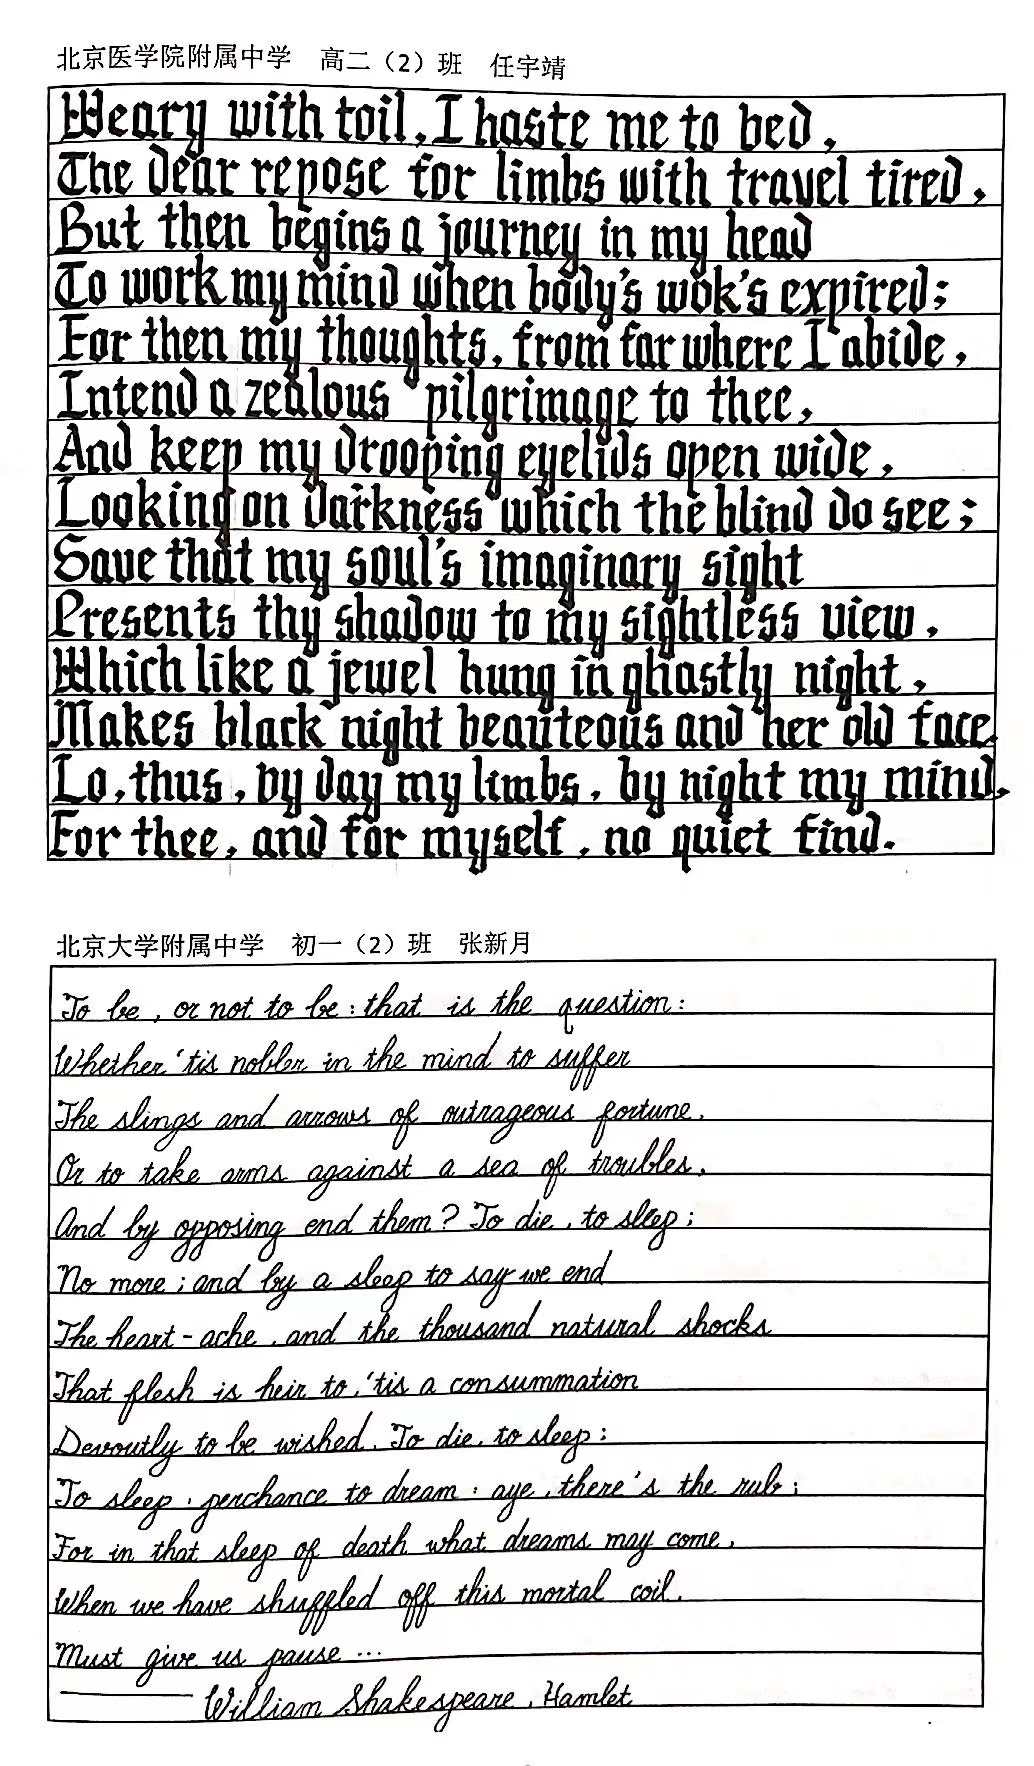 北京医学院附属中学 高二（2）班 任宇靖
Weary with toil, I haste me to bed,
The dear repose for limbs with travel tired,
But then begins a journey in my head
To work my mind when body's wok's expired;
For then my thoughts, from far where I abide,
Intend a zealous pilgrimage to thee,
And keep my drooping eyelids open wide,
Looking on darkness which the blind do see;
Save that my soul's imaginary sight
Presents thy shadow to my sightless view,
Which like a jewel hung in ghastly night,
Makes black night beauteous and her old face.
Lo, thus, by day my limbs, by night my mind,
For thee, and for myself, no quiet find.
北京大学附属中学 初一（2）班 张新月
To be, or not to be: that is the question:
Whether 'tis nobler in the mind to suffer
The slings and arrows of outrageous fortune,
Or to take arms against a sea of troubles,
And by opposing end them? To die, to sleep;
No more; and by a sleep to say we end
The heart-ache, and the thousand natural shocks
That flesh is heir to, 'tis a consummation
Devoutly to be wished. To die, to sleep;
To sleep, perchance to dream: aye, there's the rub;
For in that sleep of death what dreams may come,
When we have shuffled off this mortal coil,
Must give us pause ...
—— William Shakespeare, Hamlet